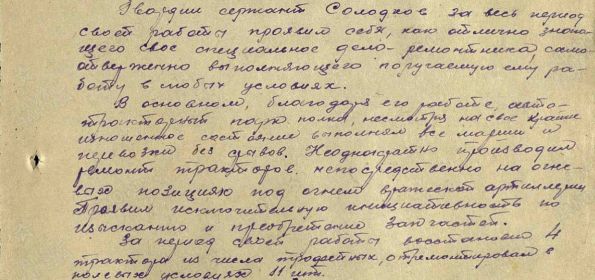 Гвардии сержант Солодков за весь период
своей работы проявил себя, как отлично знаю-
щего свое специальное дело-ремонтника, само-
отверженно выполняющего поручаемую ему ра-
боту в любых условиях.
В основном, благодаря его работе, авто-
тракторный парк полка, несмотря на свое крайне
изношенное состояние выполнял все марши и
перевозки без срывов. Неоднократно производил
ремонт тракторов непосредственно на огне-
вых позициях под огнем вражеской артиллерии
Проявил исключительную инициативность по
изысканию и преобретению запчастей.
За период своей работы восстановил 4
трактора из числа трофейных, отремонтировал в
полевых условиях 11 шт.